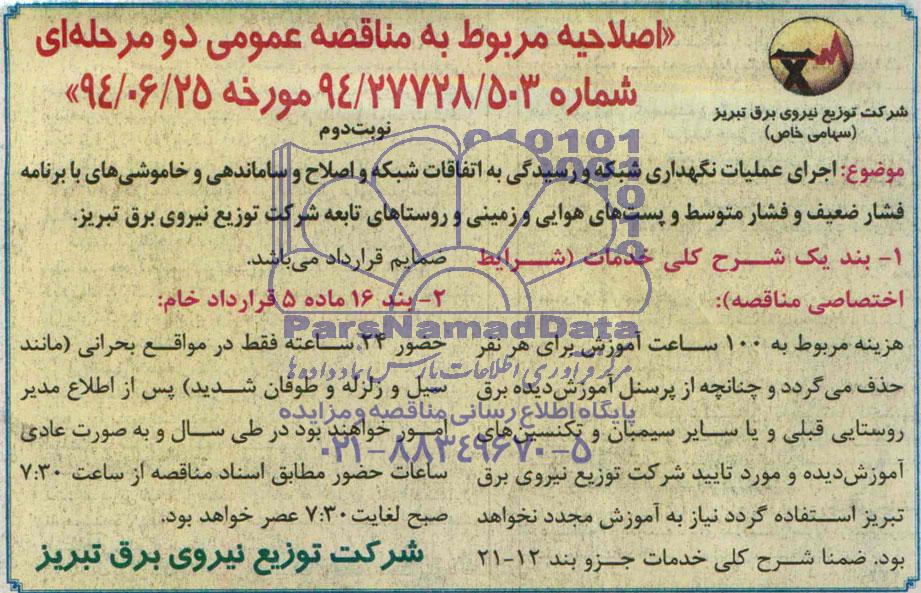 «اصلاحیه مربوط به مناقصه عمومی دو مرحله‌ای
شماره ۹۴/۲۷۷۲۸/۵۰۳ مورخه ۹۴/۰۶/۲۵»
نوبت دوم
شرکت توزیع نیروی برق تبریز
(سهامی خاص)
موضوع: اجرای عملیات نگهداری شبکه و رسیدگی به اتفاقات شبکه و اصلاح و ساماندهی و خاموشی‌های با برنامه
فشار ضعیف و فشار متوسط و پست‌های هوایی و زمینی و روستاهای تابعه شرکت توزیع نیروی برق تبریز.
۱- بند یک شرح کلی خدمات (شرایط
اختصاصی مناقصه):
هزینه مربوط به ۱۰۰ ساعت آموزش برای هر نفر
حذف می گردد و چنانچه از پرسنل آموزش‌دیده برق
روستایی قبلی و یا سایر سیمبان و تکنسین‌های
آموزش‌دیده و مورد تایید شرکت توزیع نیروی برق
تبریز استفاده گردد نیاز به آموزش مجدد نخواهد
بود. ضمنا شرح کلی خدمات جزو بند ۱۲-۲۱
ضمایم قرارداد می‌باشد.
۲- بند ۱۶ ماده ۵ قرارداد خام:
حضور ۲۴ ساعته فقط در مواقع بحرانی (مانند
سیل و زلزله و طوفان شدید) پس از اطلاع مدیر
امور خواهند بود در طی سال و به صورت عادی
ساعات حضور مطابق اسناد مناقصه از ساعت ۷:۳۰
صبح لغایت ۷:۳۰ عصر خواهد بود.
شرکت توزیع نیروی برق تبریز
ParsNamadData
مرکز فرآوری اطلاعات پارس نماد داده‌ها
پایگاه اطلاع رسانی مناقصه و مزایده
۰۲۱-۸۸۳۴۹۶۷۰-۵